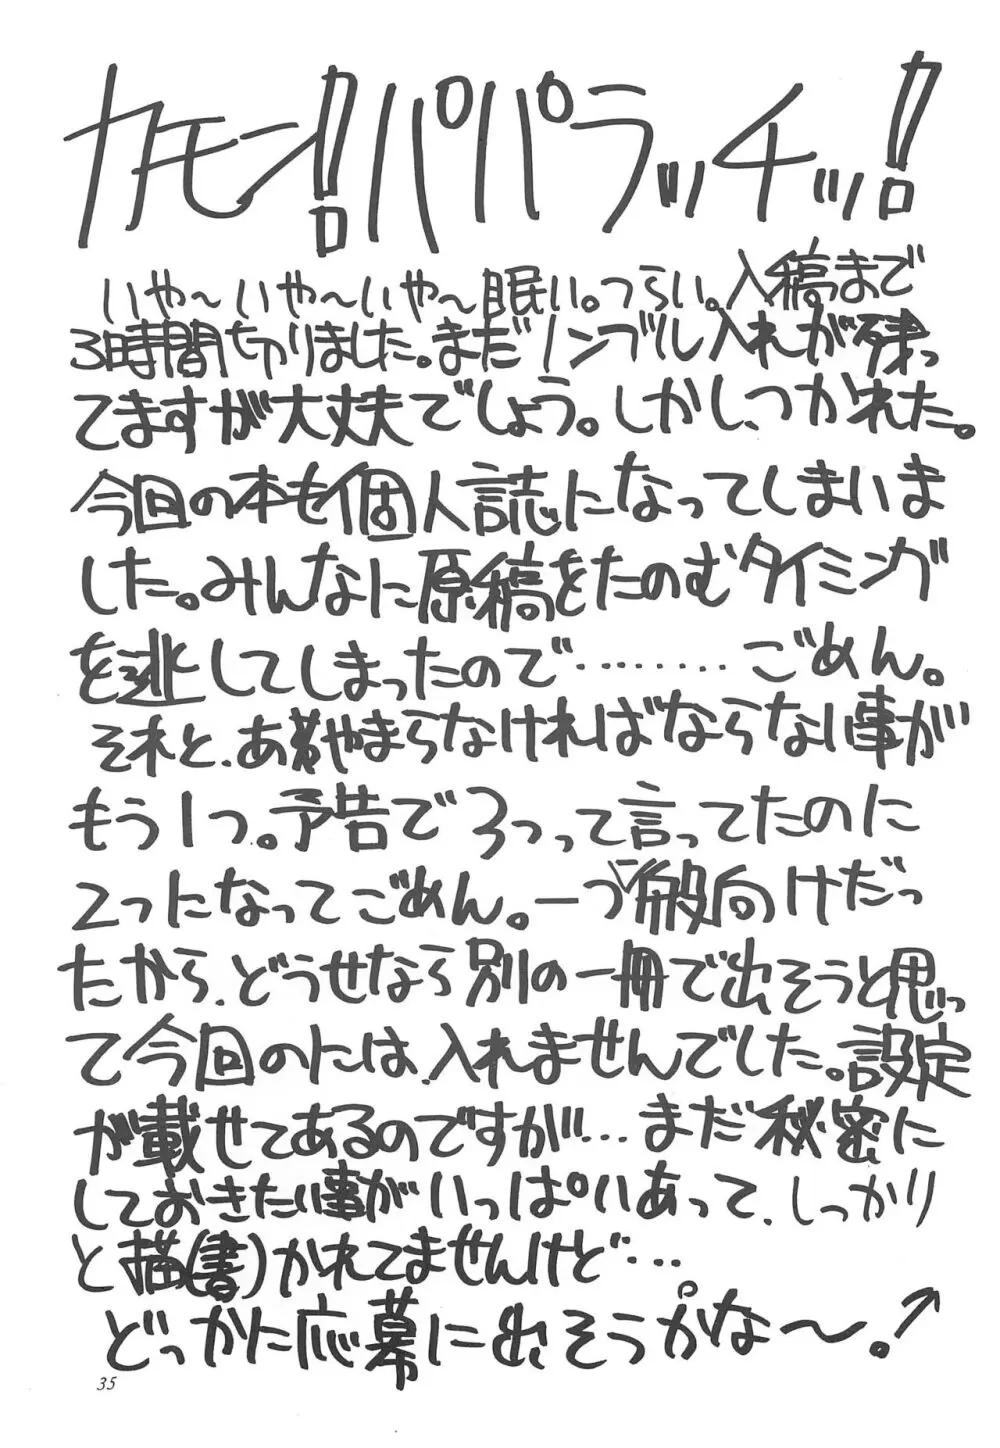 カモン!パパラッチッ!
いや〜いや〜いや〜眠い。つらい。入稿まで
3時間切りました。まだノンブル入れが残っ
てますが大丈夫でしょう。しかし、つかれた。
今回の本も個人誌になってしまいま
した。みんなに原稿をたのむタイミング
を逃してしまったので………ごめん。
それと、あやまらなければならない事が
もう1つ。予告で3つって言ってたのに
2つになってごめん。一つ一般向けだっ
たから、どうせなら別の一冊で出そうと思っ
て今回のには、入れませんでした。設定
が載せてあるのですが…まだ秘密に
しておきたい事がいっぱいあって、しっかり
と描(書)かれてませんけど…
どっかに応募に出そうかな〜。↗
35